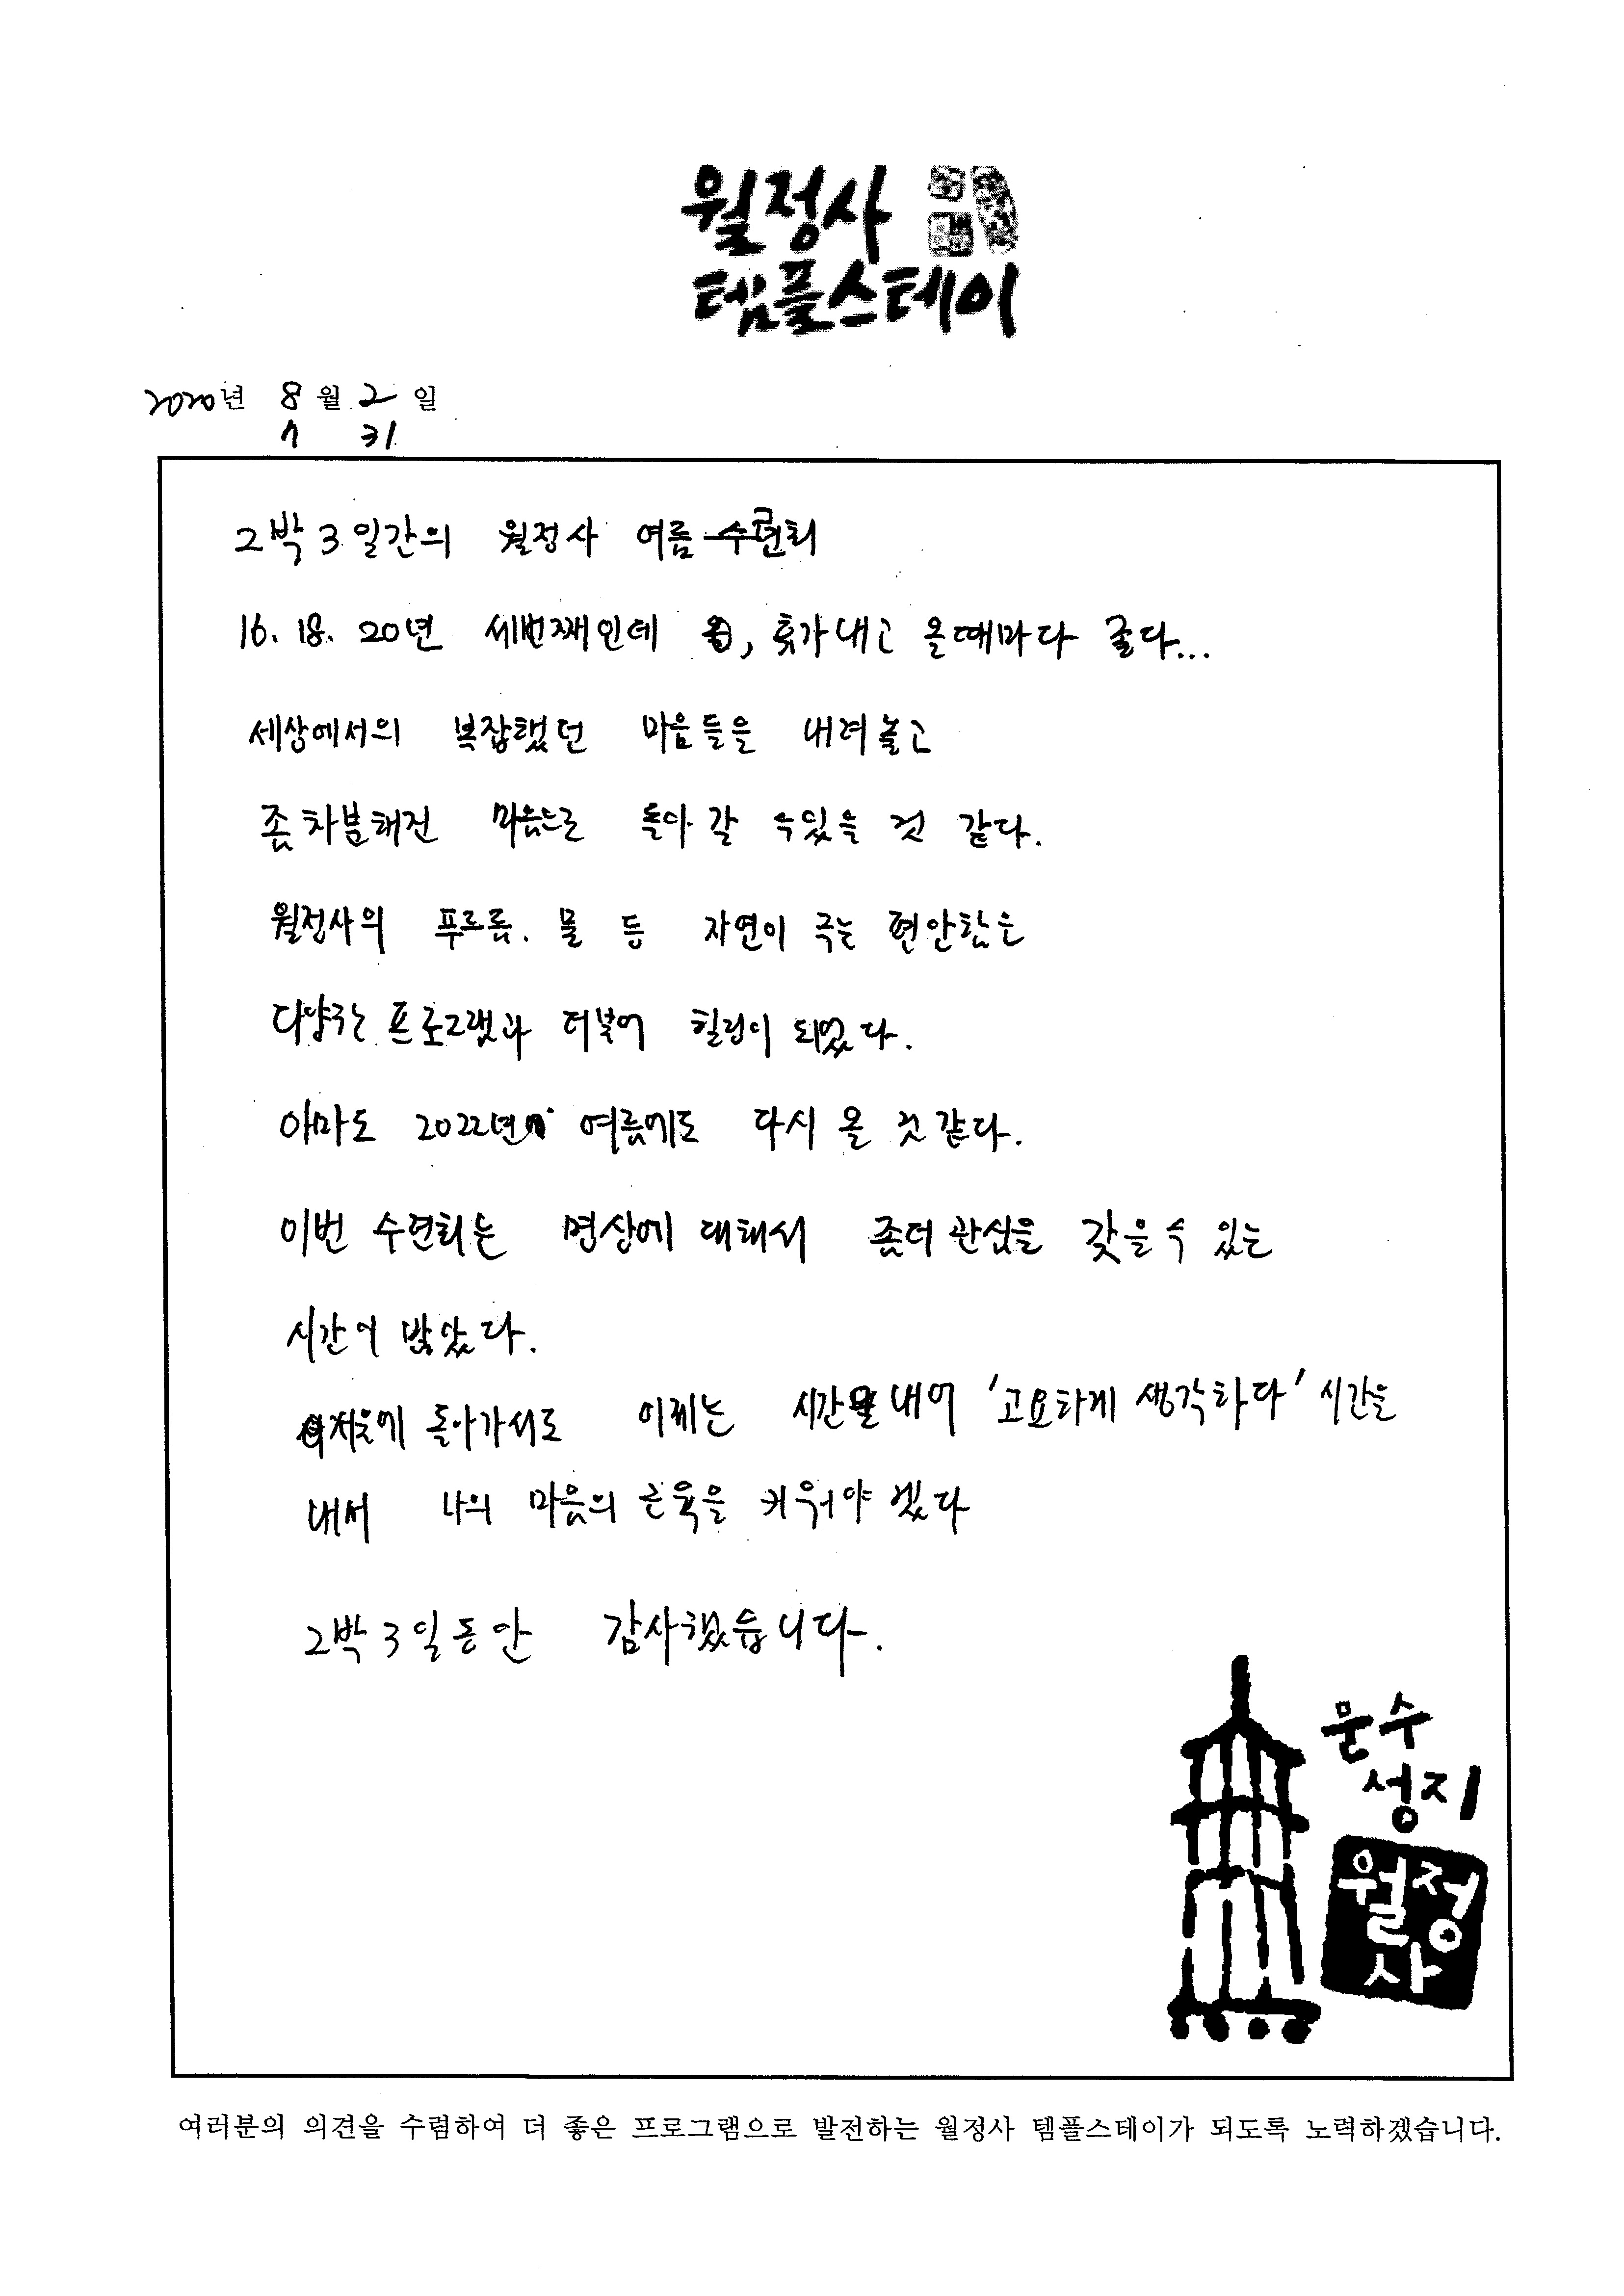 월정사
템플스테이
2020년 8월 2일
7 31
2박 3일간의 월정사 여름 수련회
16. 18. 20년 세번째인데 휴가내고 올때마다 좋다...
세상에서의 복잡했던 마음들을 내려놓고
좀 차분해진 마음으로 돌아 갈 수있을 것 같다.
월정사의 푸르름. 물 등 자연이 주는 편안함은
다양한 프로그램과 더불어 힐링이 되었다.
아마도 2022년 여름에도 다시 올 것 같다.
이번 수련회는 명상에 대해서 좀더 관심을 갖을수 있는
시간이 많았다.
서울에 돌아가서도 이제는 시간을 내어 '고요하게 생각하다' 시간을
내서 나의 마음의 근육을 키워야 겠다
2박 3일동안 감사했습니다.
문수
성지
월정
사
여러분의 의견을 수렴하여 더 좋은 프로그램으로 발전하는 월정사 템플스테이가 되도록 노력하겠습니다.